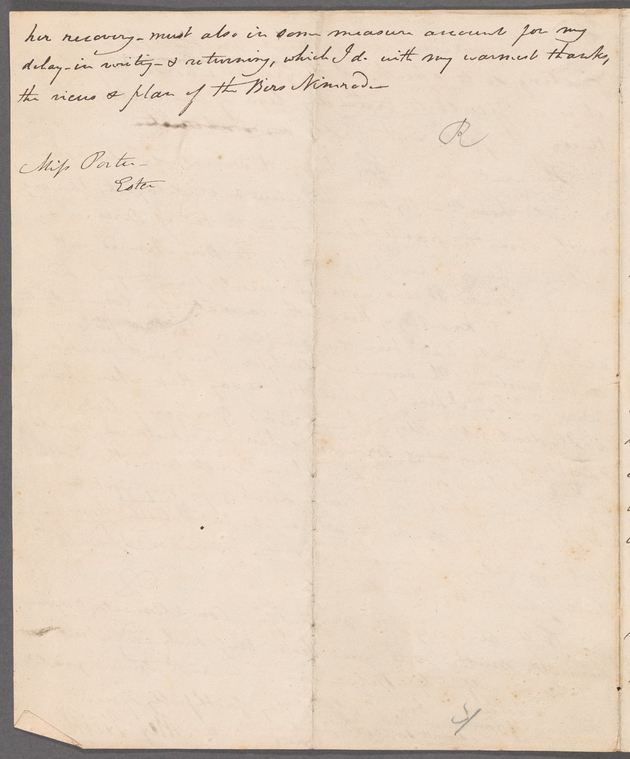 her recovery - must also in some measure account for my
delay - in writing - & returning, which I do with my warmest thanks,
the views & plan of the Birs Nimrod -
R
Miss Porter -
Ester